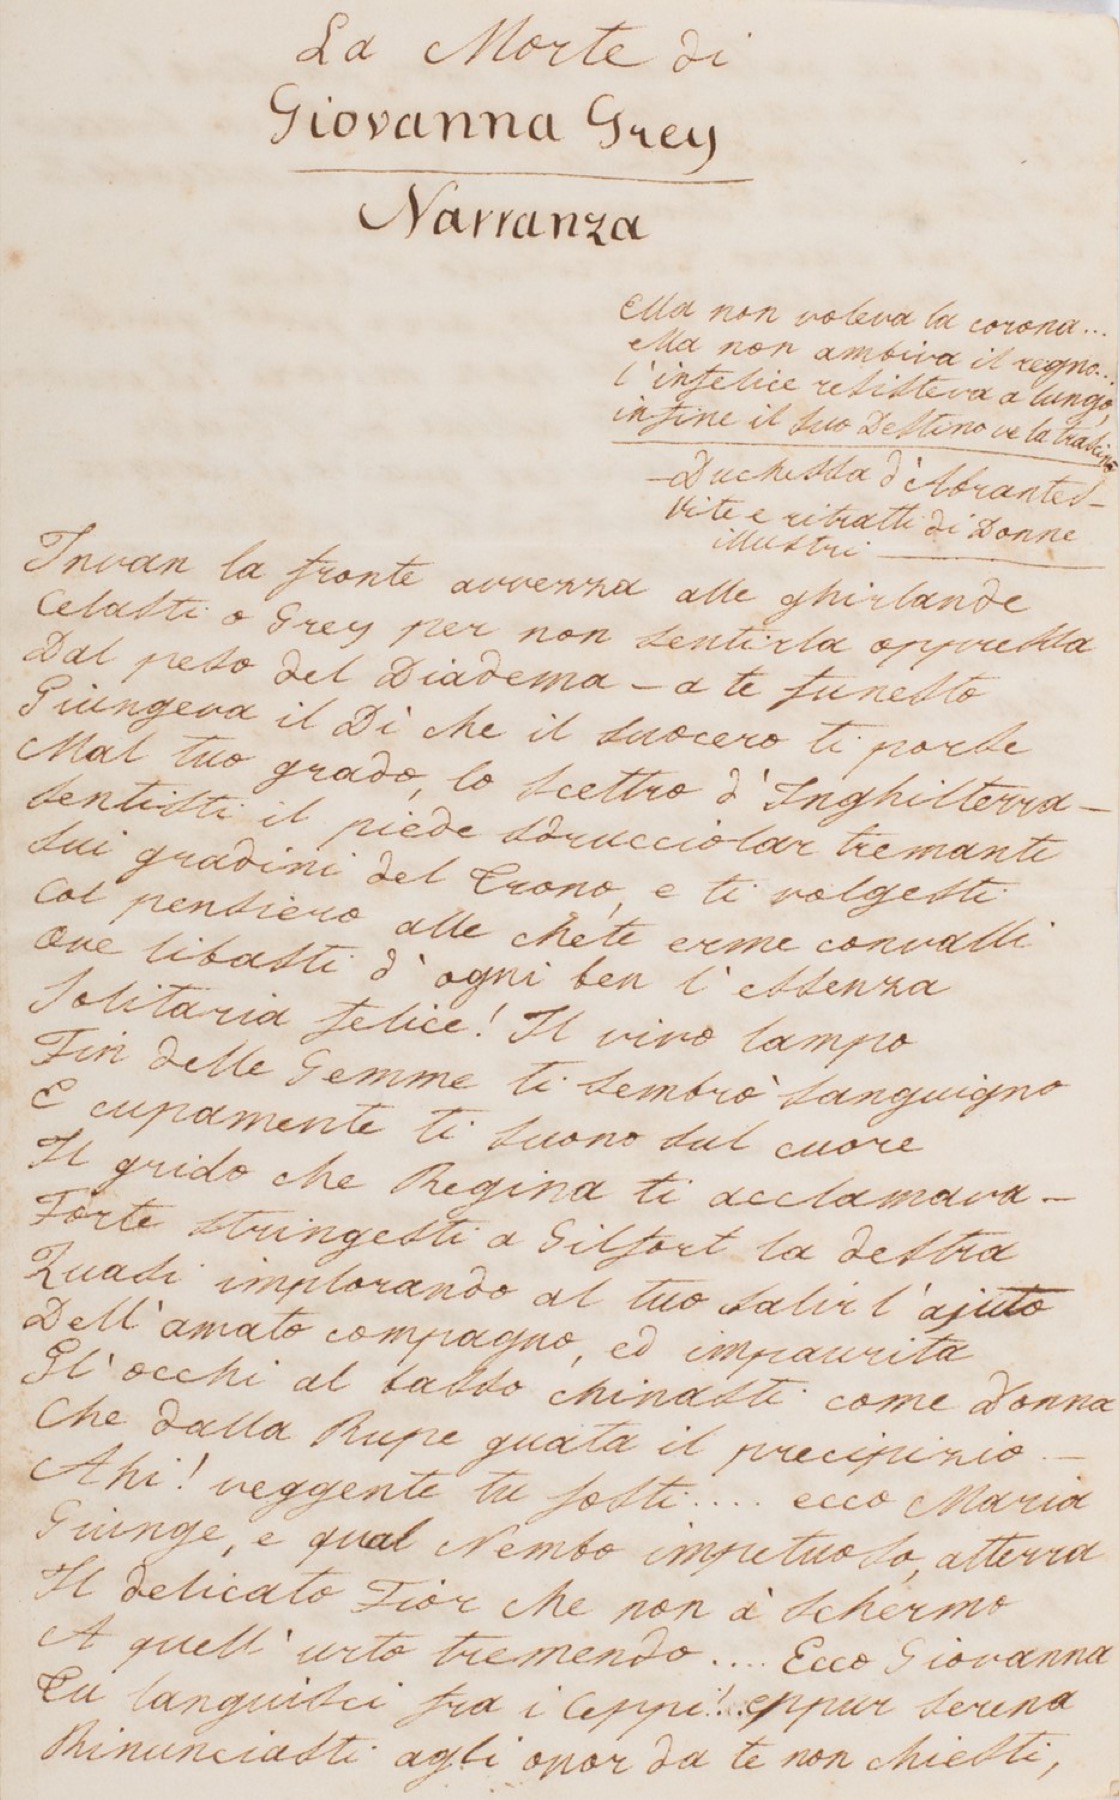 La Morte di
Giovanna Grey
Narranza
Ella non voleva la corona...
ella non ambiva il regno...
l'infelice resisteva a lungo,
infine il suo Destino ve la trascinò
– Duchessa d'Abrantes –
Vite e ritratti di Donne
illustri
Invan la fronte avvezza alle ghirlande
Celasti o Grey per non sentirla oppressa
Dal peso del Diadema – a te funesto
Giungeva il Dì che il suocero ti porse
Mal tuo grado, lo scettro d'Inghilterra –
Sentisti il piede sdrucciolar tremante
Sui gradini del Trono, e ti volgesti
Col pensiero alle chete erme convalli
Ove libasti d'ogni ben l'essenza
Solitaria felice! Il vivo lampo
Fin delle Gemme ti sembrò sanguigno
E cupamente ti suono sul cuore
Il grido che Regina ti acclamava –
Forte stringesti a Gilfort la destra
Quasi implorando al tuo salir l'ajuto
Dell'amato compagno, ed impaurita
Gl'occhi al basso chinasti come Donna
Che dalla Rupe guata il precipizio –
Ahi! veggente tu fosti.... ecco Maria
Giunge, e qual Nembo impetuoso, atterra
Il delicato Fior che non à schermo
A quell'urto tremendo.... Ecco Giovanna
Tu languisci fra i Ceppi!... eppur serena
Rinunciasti agli onor da te non chiesti,